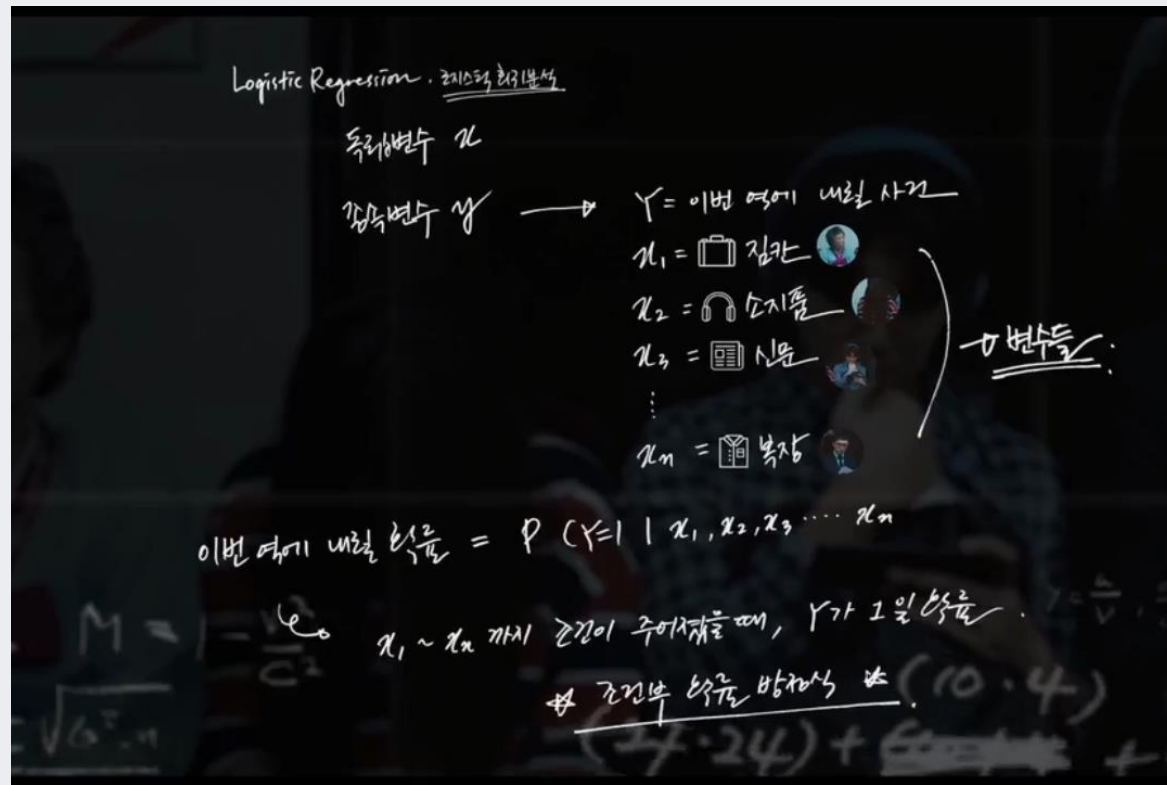 Logistic Regression. 로지스틱 회귀분석
독립변수 x
종속변수 y → Y = 이번 역에 내릴 사건
x₁ = 짐칸
x₂ = 소지품
x₃ = 신문
⋮
xₙ = 복장
→ 변수들.
이번 역에 내릴 확률 = P (Y=1 | x₁, x₂, x₃ ···· xₙ
x₁ ~ xₙ 까지 조건이 주어졌을때, Y가 1일 확률.
☆ 조건부 확률 방정식 ☆.
M = 1 -
C²
(10·4)
(24·24) +